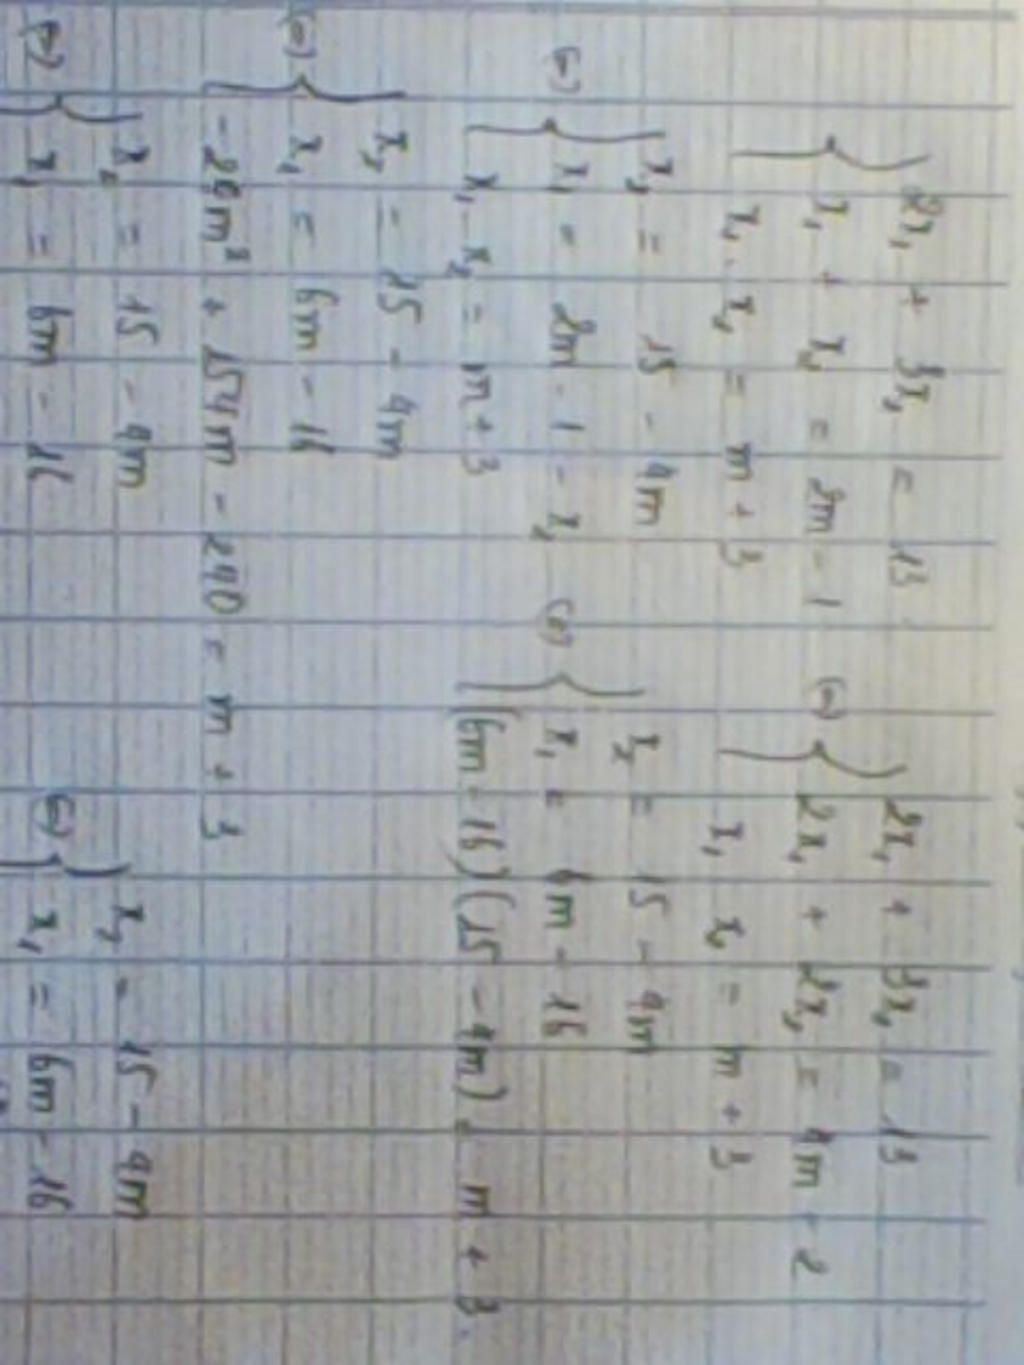 { 2x₁ + 3x₂ = 13
x₁ + x₂ = 2m - 1
x₁ . x₂ = m + 3
(=) { 2x₁ + 3x₂ = 13
2x₁ + 2x₂ = 4m - 2
x₁ x₂ = m + 3
(=) { x₂ = 15 - 4m
x₁ = 2m - 1 - x₂
x₁ . x₂ = m + 3
(=) { x₂ = 15 - 4m
x₁ = 6m - 16
(6m - 16)(15 - 4m) = m + 3.
(=) { x₂ = 15 - 4m
x₁ = 6m - 16
- 24m² + 154m - 240 = m + 3
(=) { x₂ = 15 - 4m
x₁ = 6m - 16
(=) { x₂ = 15 - 4m
x₁ = 6m - 16